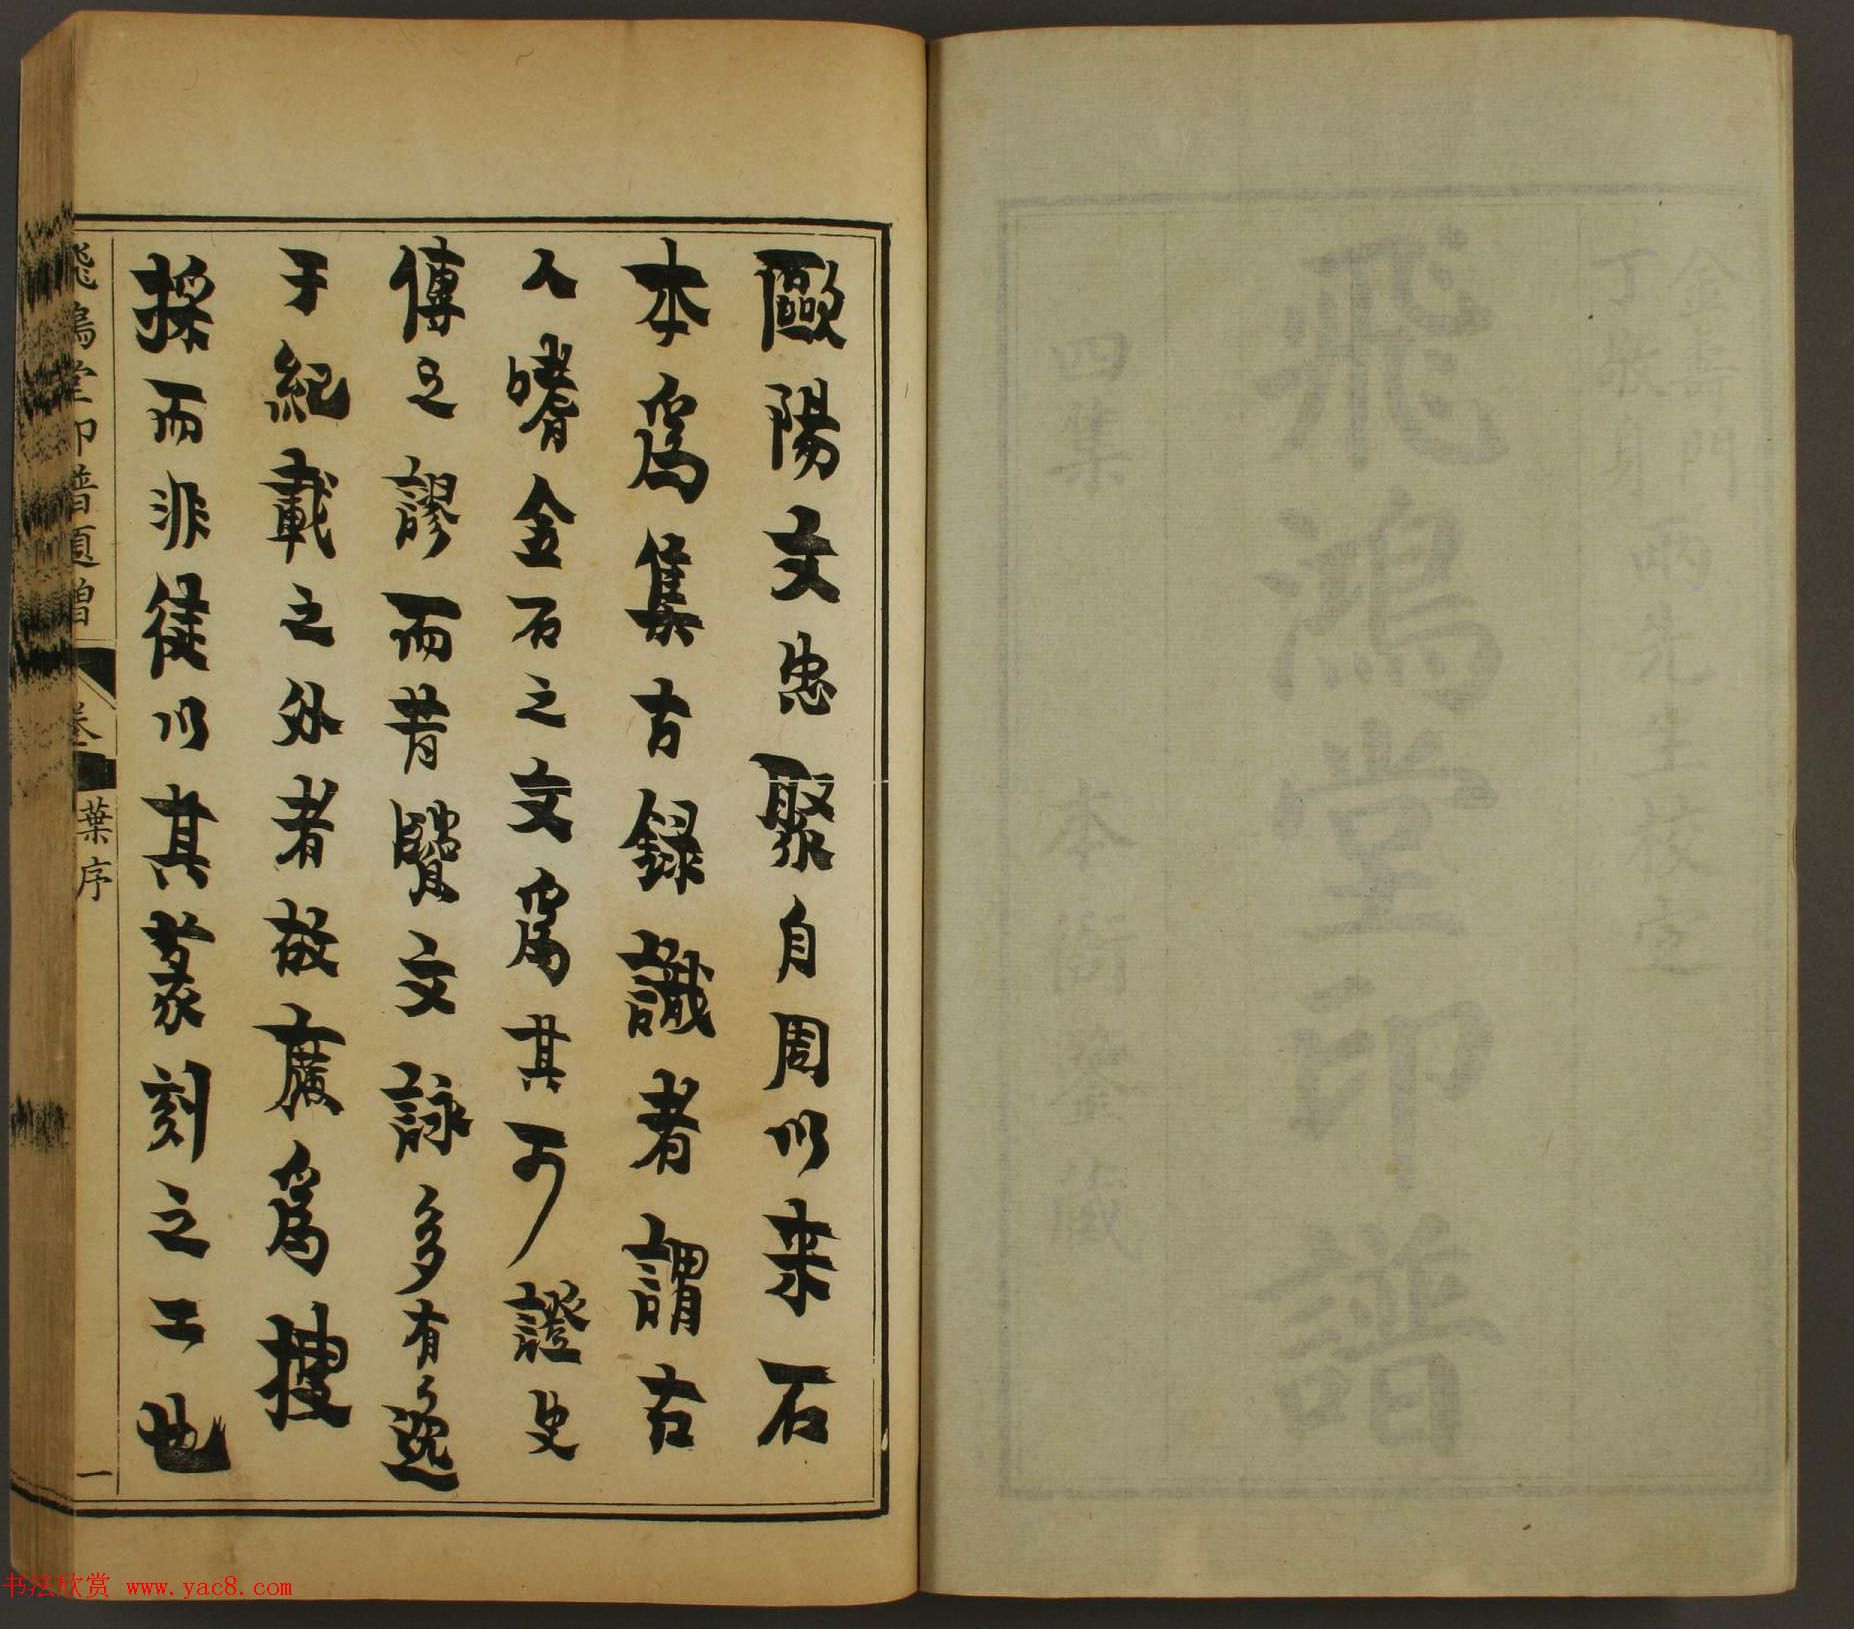 金壽門
丁敬身
兩先生校定
飛鴻堂印譜
四集 本衙藏
歐陽文忠聚自周以來石
本爲集古録識者謂古
人嗜金石之文爲其可證史
傳之謬而昔賢文詠多有逸
于紀載之外者故廣爲搜
採而非徒以其篆刻之工也
飛鴻堂印譜 卷 葉序 一
书法欣赏 www.yac8.com